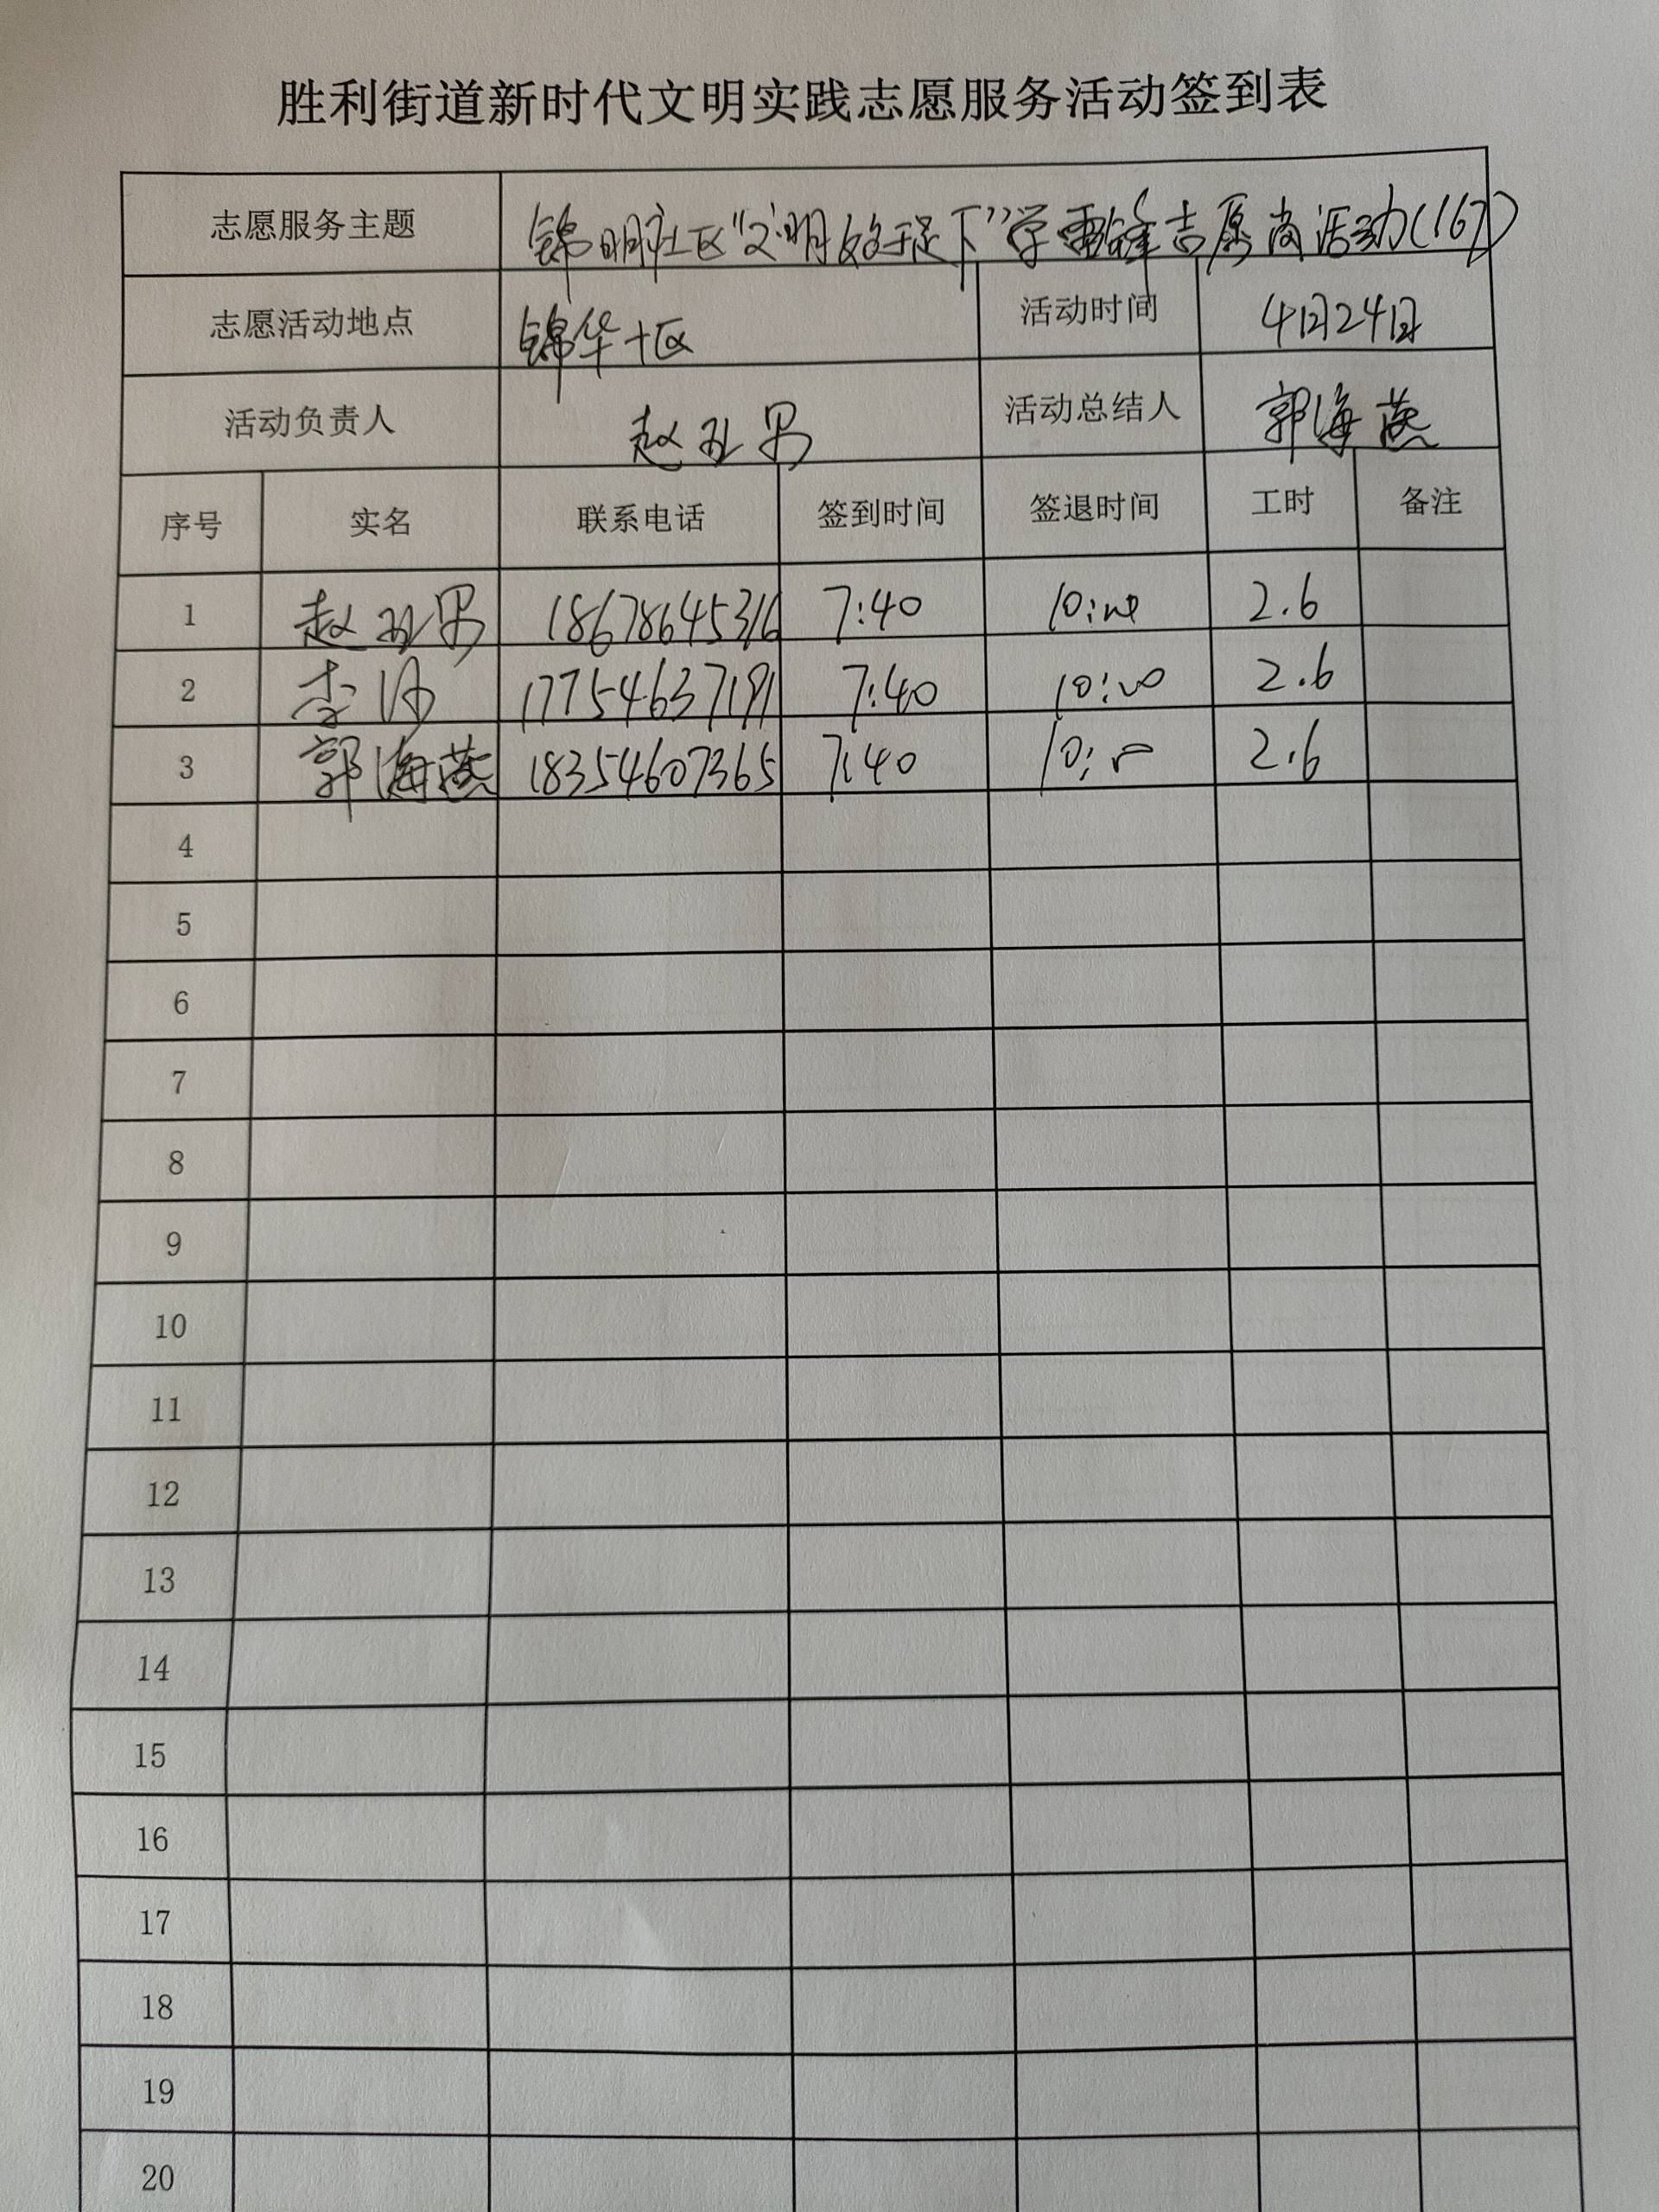 胜利街道新时代文明实践志愿服务活动签到表
志愿服务主题 锦明社区“文明始于足下”学雷锋志愿尚活动(167)
志愿活动地点 锦华十区 活动时间 4月24日
活动负责人 赵 男 活动总结人 郭海燕
序号 实名 联系电话 签到时间 签退时间 工时 备注
1 赵 男 18678645316 7:40 10:00 2.6
2 李 17754637191 7:40 10:00 2.6
3 郭海燕 18354607365 7:40 10:00 2.6
4
5
6
7
8
9
10
11
12
13
14
15
16
17
18
19
20